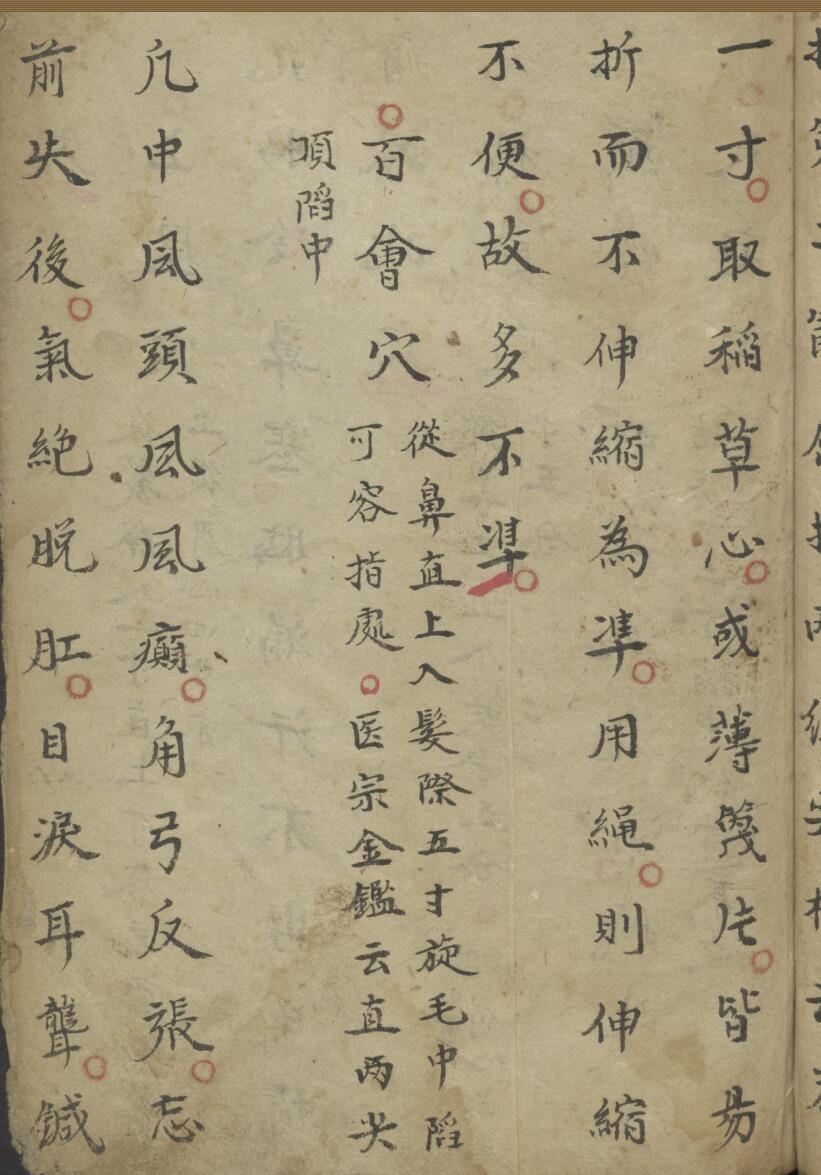 一寸取稻草心或薄篾片皆易
折而不伸縮為準用繩則伸縮
不便故多不準
百會穴
從鼻直上入髮際五寸旋毛中陷
可容指處医宗金鑑云直两尖
項陷中
凢中風頭風風癲角弓反張忘
前失後氣絕脫肛目淚耳聾鍼